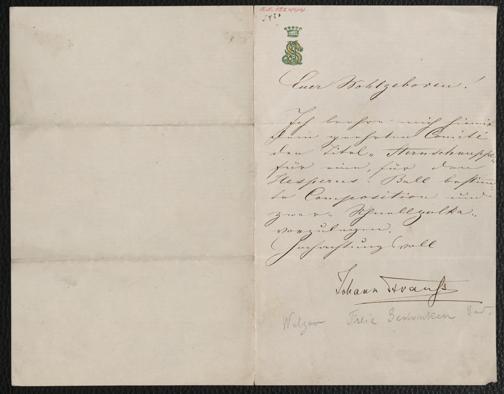 Euer Wohlgeboren!
Ich beehre mich hiemit
dem geehrten Comité
den Titel "Sternschnuppe"
für eine, für den
Hesperus-Ball bestimm
te Composition und
zwar Schnellpolka
vorzulegen.
Hochachtungsvoll
Johann Strauß
Walzer Freie Gedanken